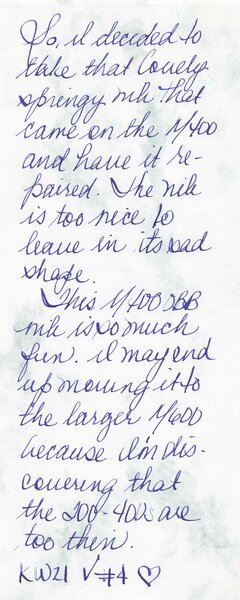 So, I decided to
take that lovely
springy nib that
came on the M400
and have it re-
paired. The nib
is too nice to
leave in its sad
shape.
This M400 OBB
nib is so much
fun. I may end
up moving it to
the larger M600
because I'm dis-
covering that
the 200-400s are
too thin.
KW21 √#4 ♡